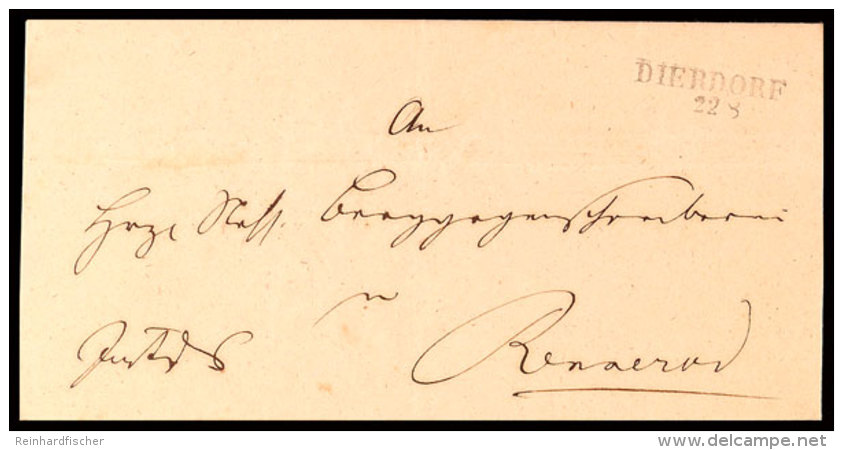 DIERDORF
22 8
An
Hrzl Nass. Berggegenschreiberei
in
Rennerod
Reinhardfischer
www.delcampe.net